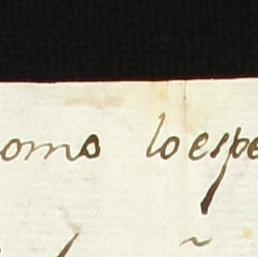 omo loespe